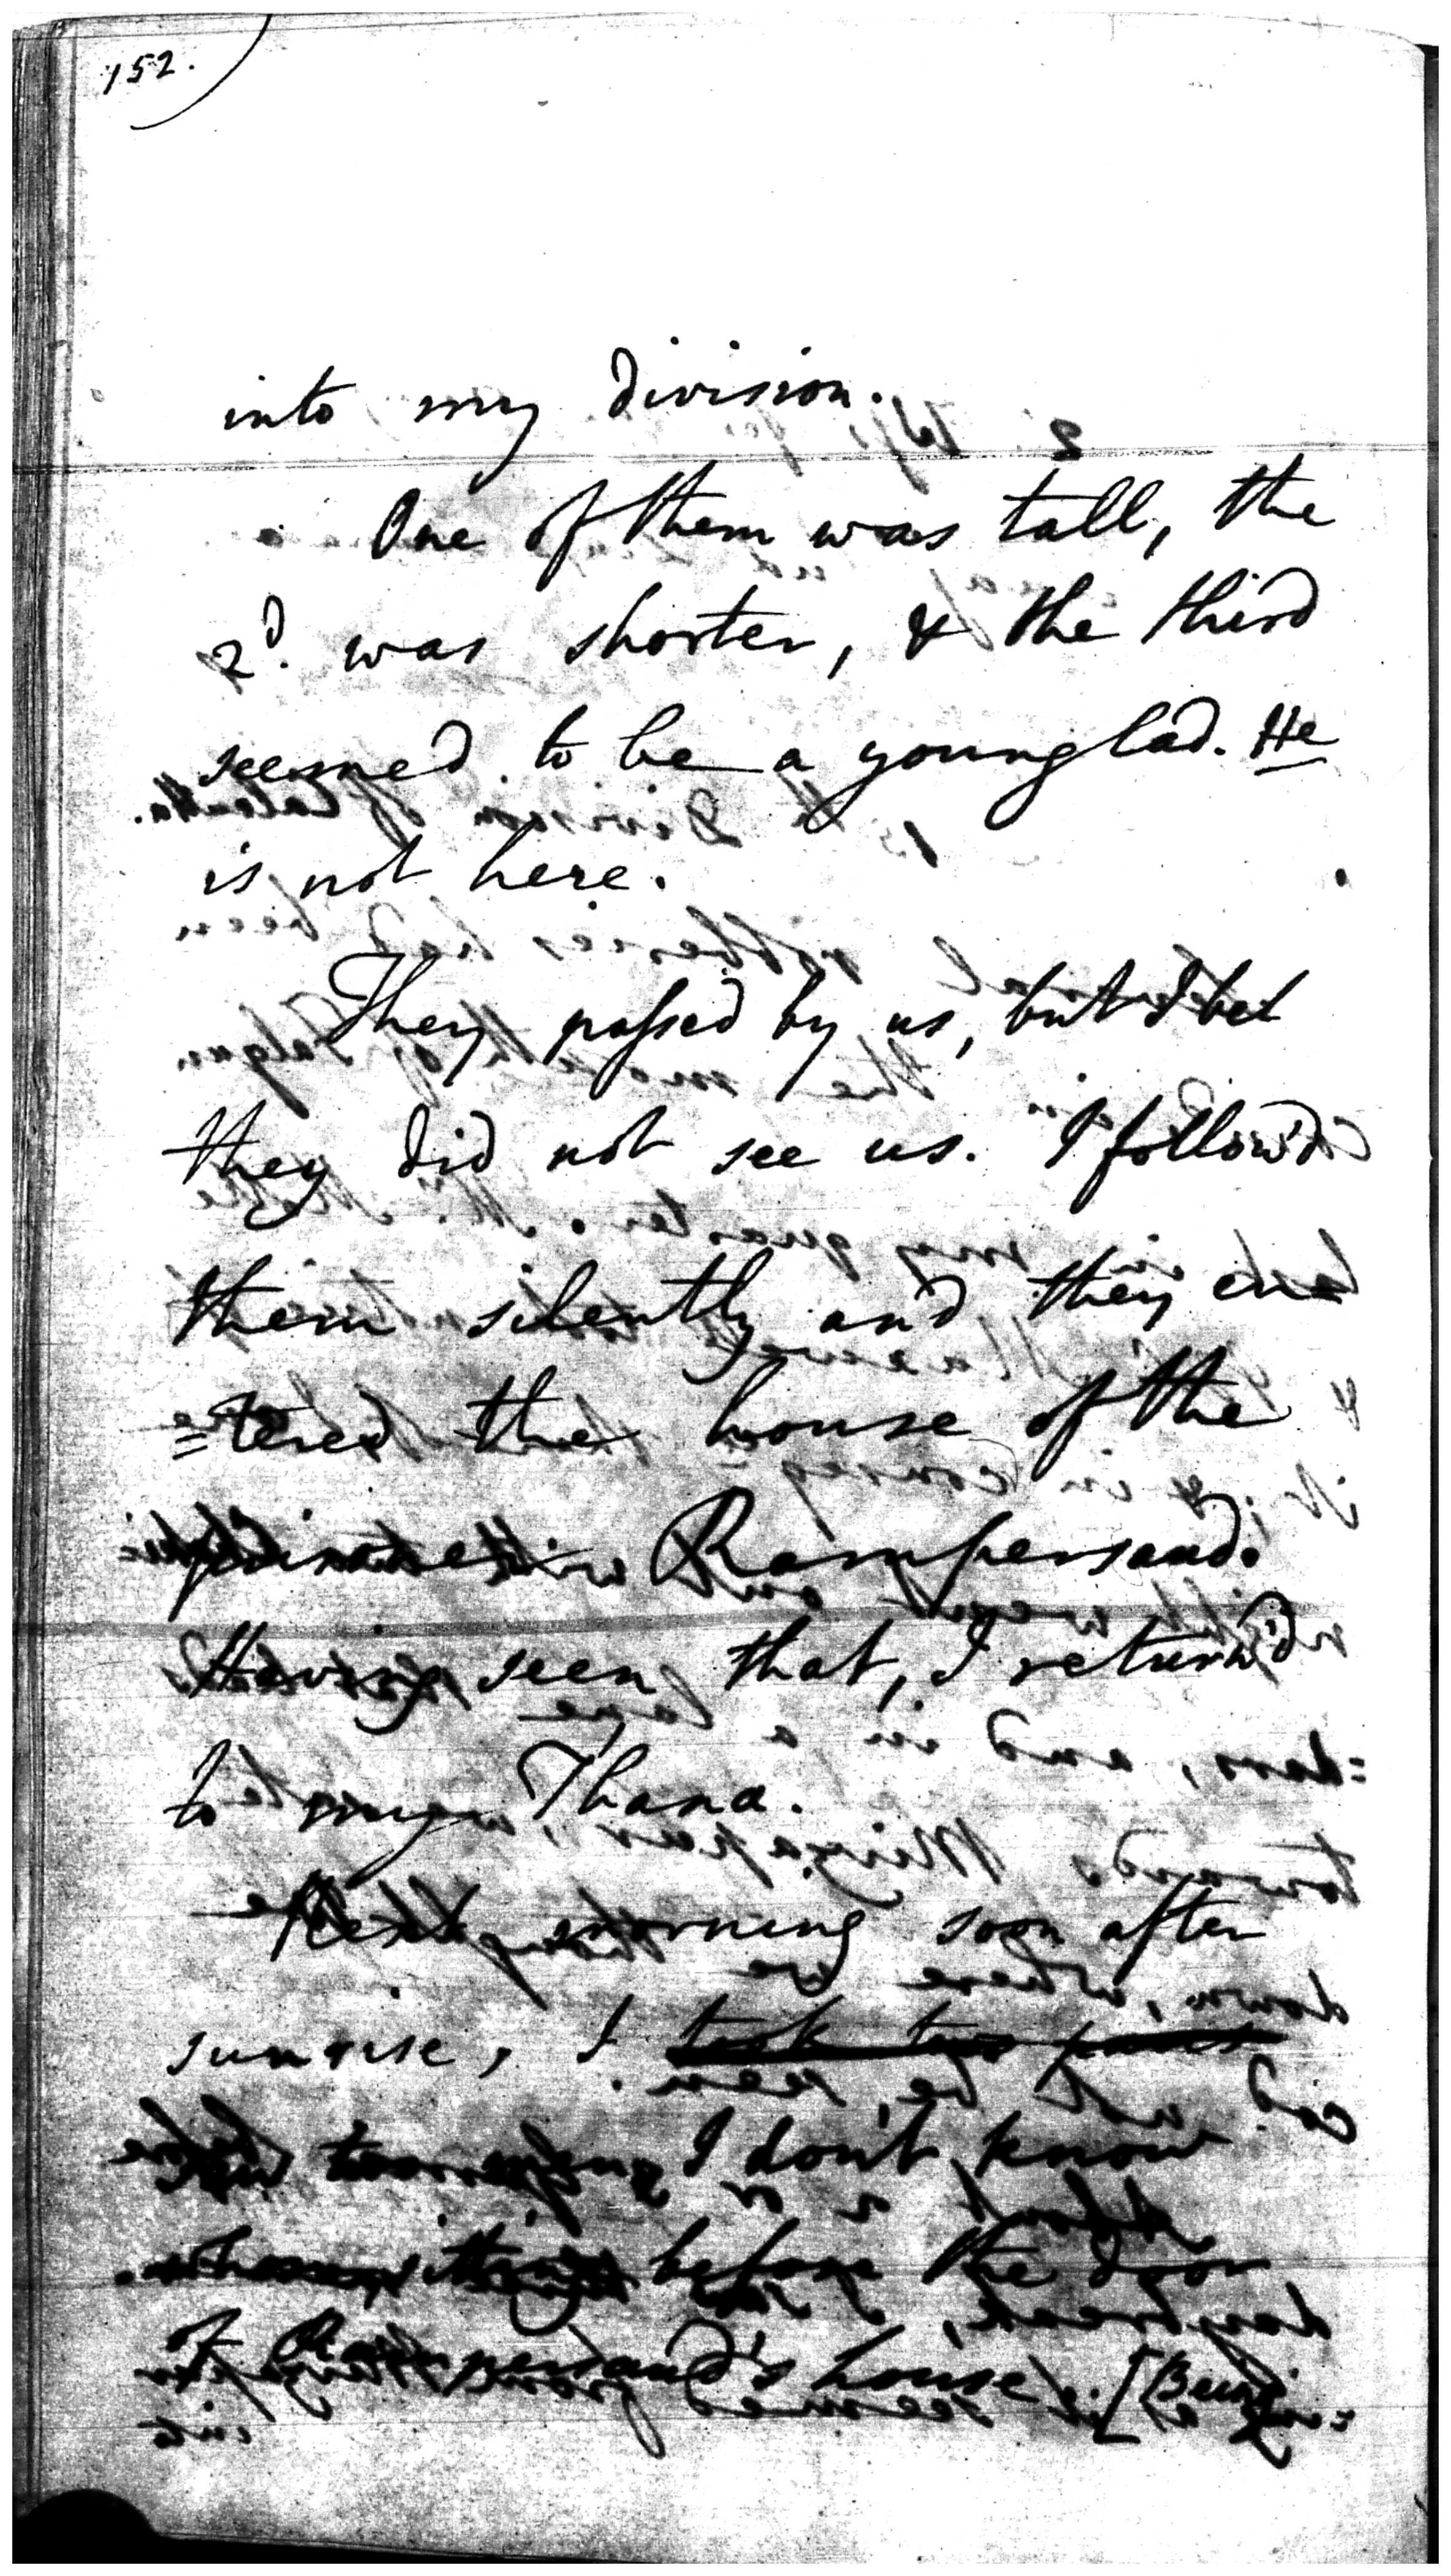 152.
into my division.
One of them was tall, the
2d. was shorter, & the third
seemed to be a young lad. He
is not here.
They passed by us, but I bel
they did not see us. I follow'd
them silently and they en=
=tered the house of the
prisoner Rampersaud.
Having seen that, I return'd
to my Thana.
Next morning soon after
sunrise, I took two
I don't know
whom sitting before the door
of Rampersaud's house. [Being